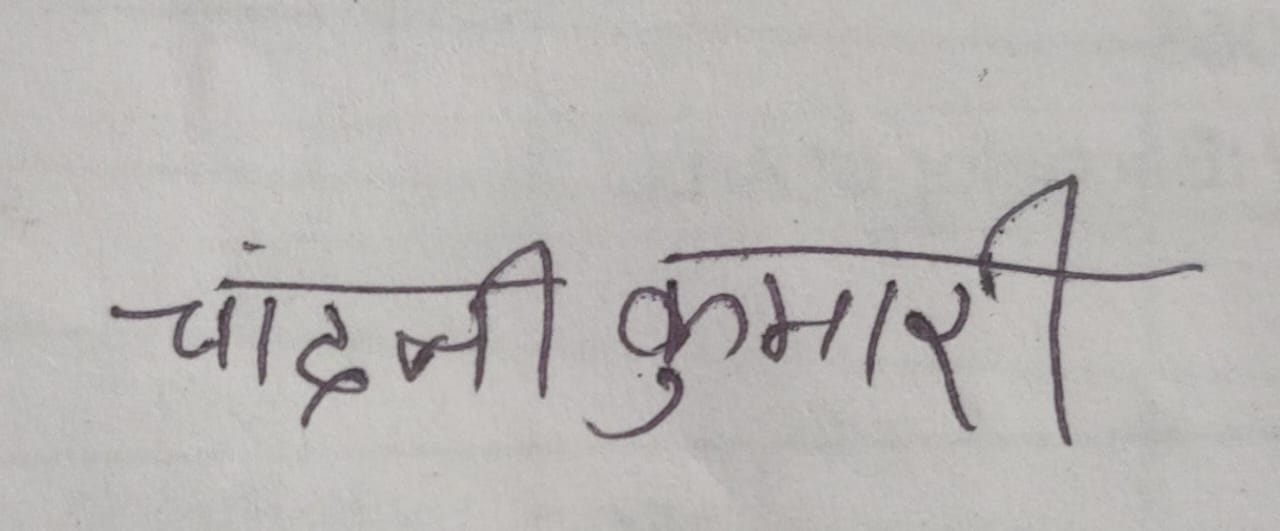 चांदनी कुमारी